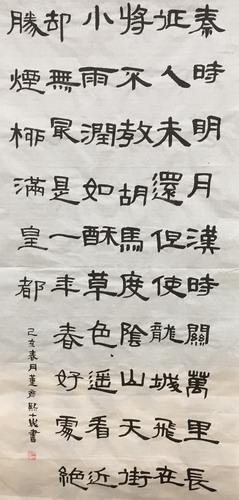 秦時明月漢時關萬里長
征人未還但使龍城飛在
將不教胡馬度陰山天街
小雨潤如酥草色遙看近
却無最是一年春好處絕
勝煙柳滿皇都
己亥春月
書